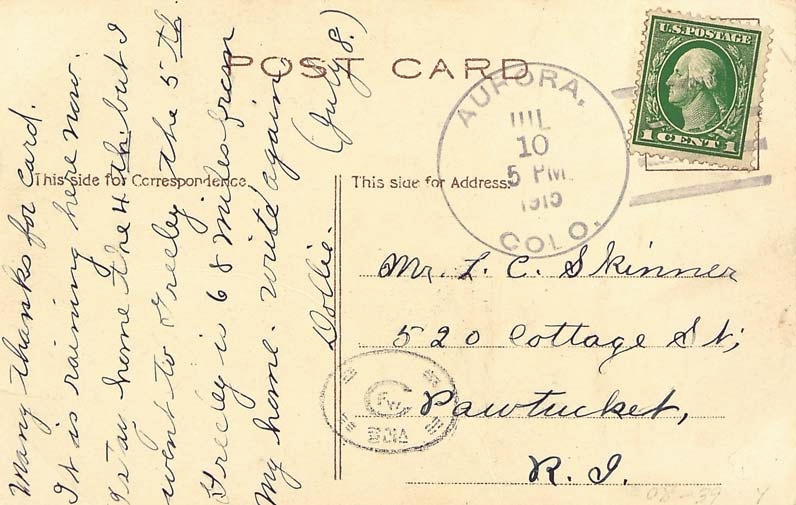 POST CARD
This side for Correspondence.
This side for Address.
U.S. POSTAGE
1 CENT 1
AURORA,
JUL
10
5 PM
1915
COLO.
Mr. L. C. Skinner
520 Cottage St,
Pawtucket,
R. I.
Many thanks for card.
It is raining here now.
at home the 4th. but I
went to Greeley the 5th.
Greeley is 68 miles from
my home. Write again
Dollie. (July 8.)